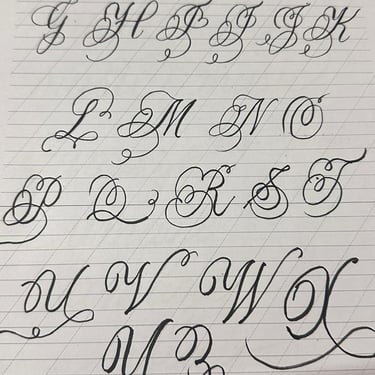 G H I I J K
L M N O
P Q R S T
U V W X
Y Z